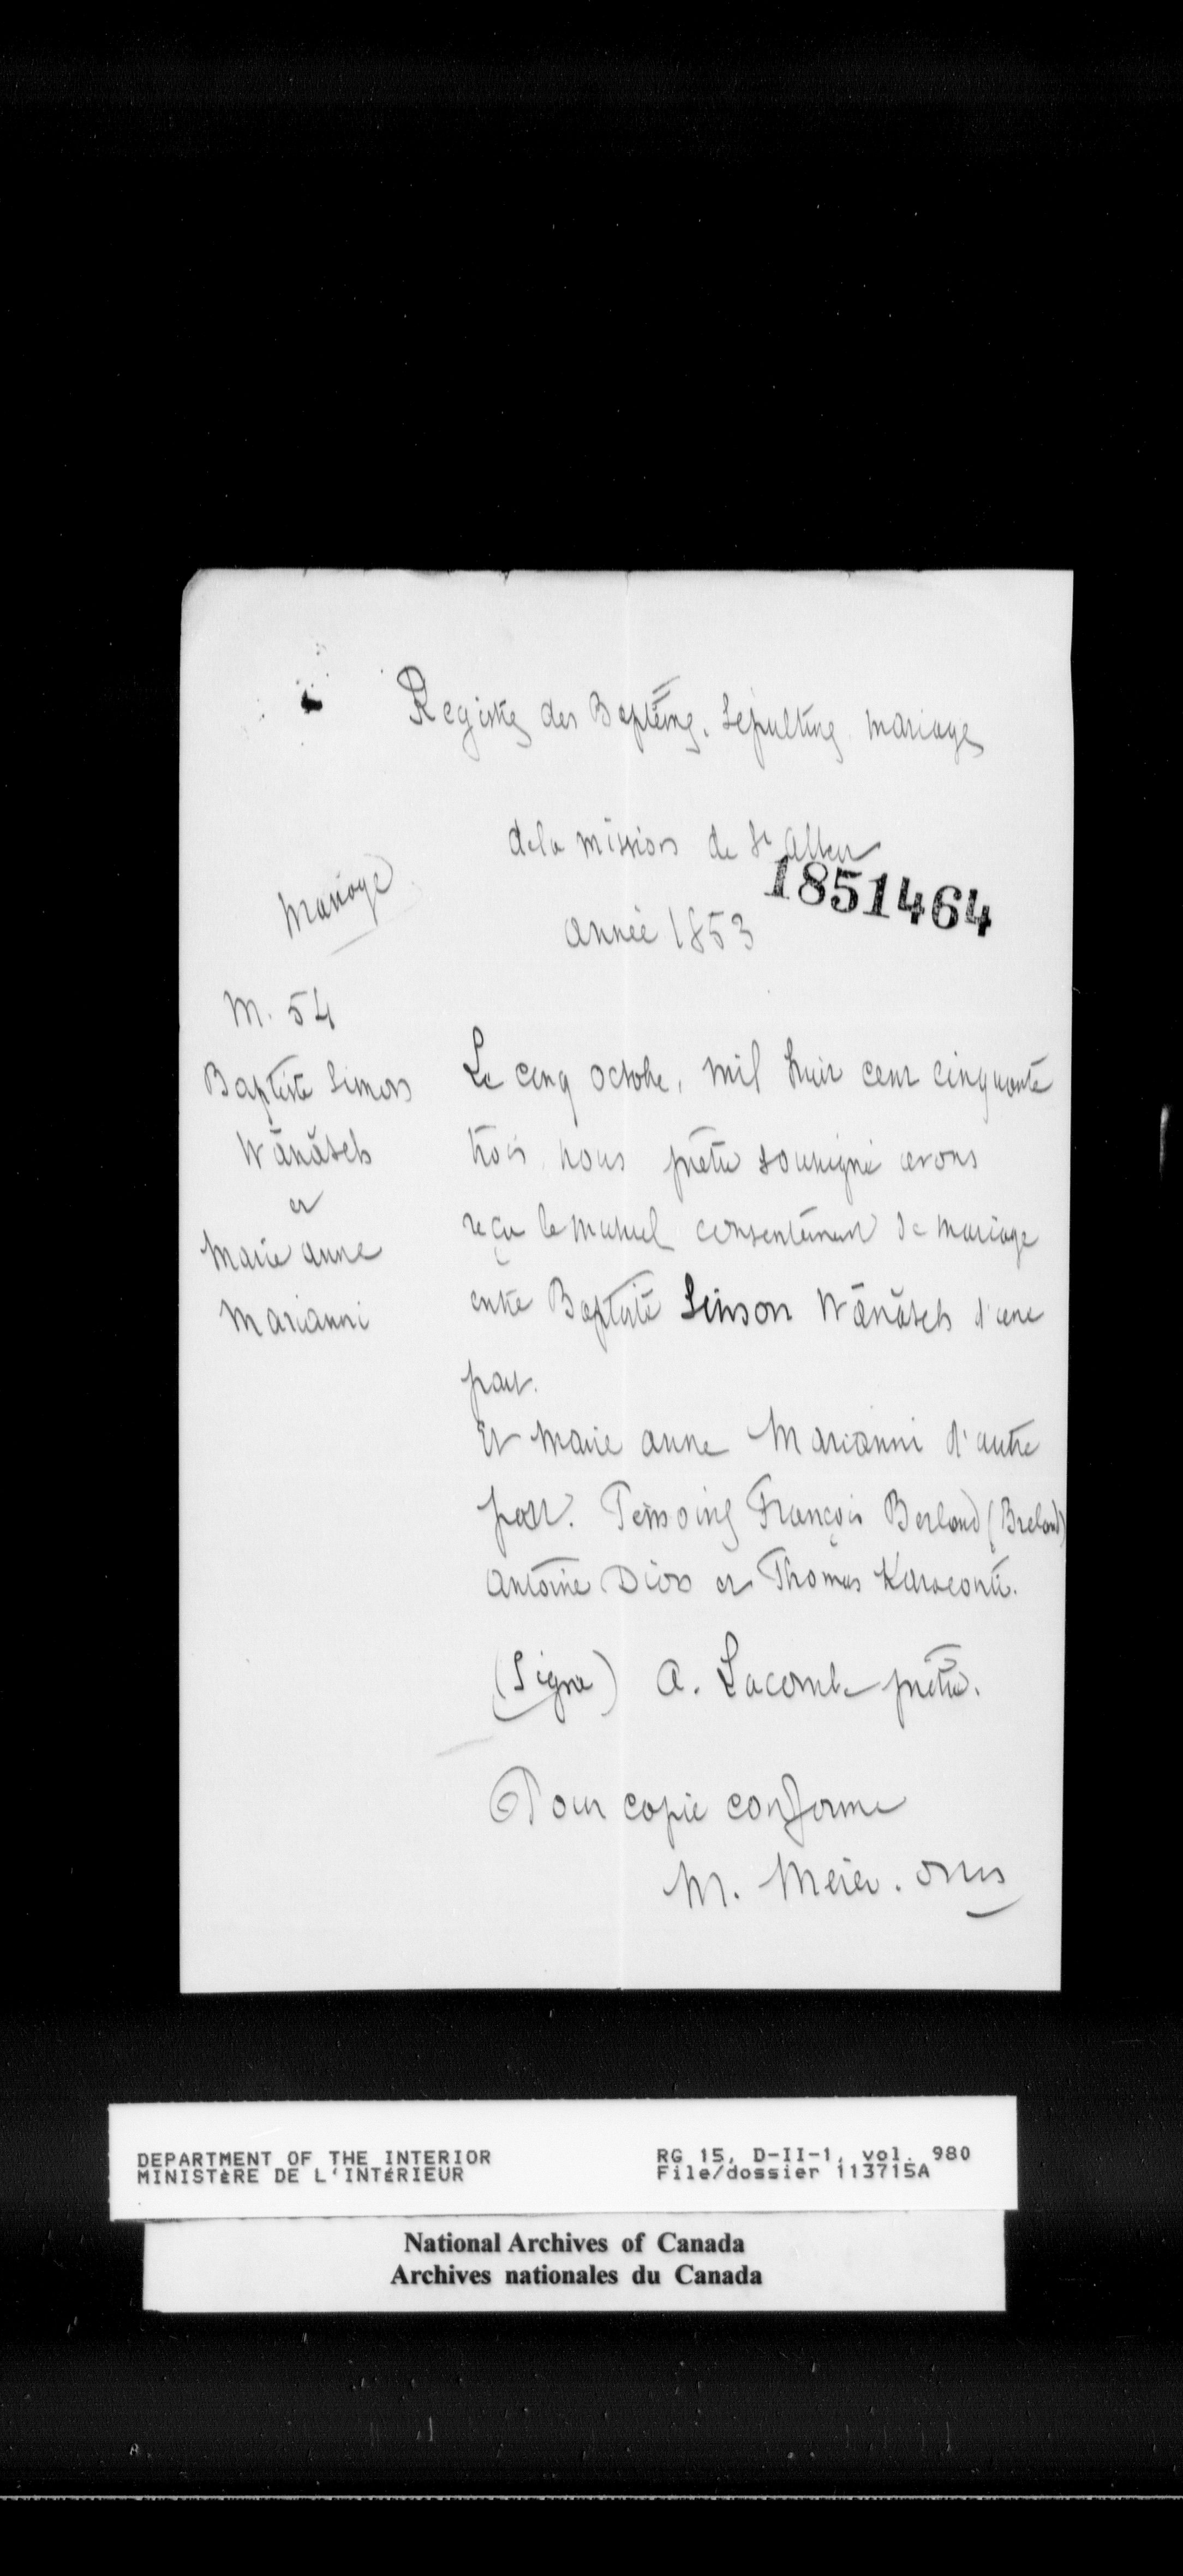 Registres des Baptêmes. Sépultures mariages
de la mission de St Albert
1851464
année 1853
Mariage
M. 54
Baptiste Simon
Wānăseb
et
Marie anne
Marianni
Le cinq octobre, mil huit cent cinquante
trois, nous prêtre soussigné avons
reçu le mutuel consentement de mariage
entre Baptiste Simon Wānăseb d'une
part.
Et Marie anne Marianni d'autre
part. Témoins François Berland (Breland)
Antoine Dion et Thomas
(Signé) A. Lacombe prêtre.
Pour copie conforme
M. Meier. omi
DEPARTMENT OF THE INTERIOR
MINISTÈRE DE L'INTÉRIEUR
RG 15, D-II-1, vol. 980
File/dossier 113715A
National Archives of Canada
Archives nationales du Canada